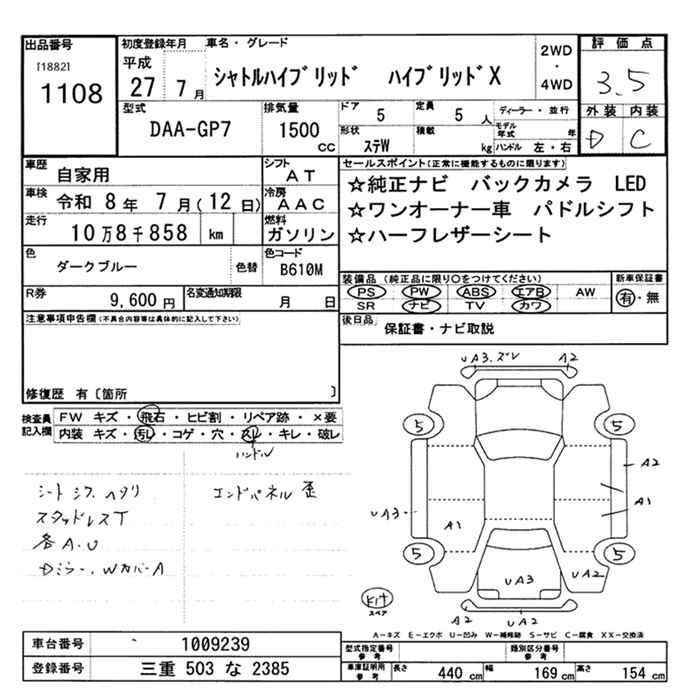 出品番号
[1882]
1108
初度登録年月
平成
27 7 月
車名・グレード
シャトルハイブリッド ハイブリッドX
2WD
・
4WD
評価点
3.5
外装 内装
D C
型式
DAA-GP7
排気量
1500 CC
ドア 5
定員 5 人
形状 ステW
積載 kg
ディーラー・並行
モデル年式 年
ハンドル 左・右
車歴 自家用
車検 令和 8 年 7 月(12 日)
走行 10 万 8 千 858 km
シフト AT
冷房 AAC
燃料 ガソリン
セールスポイント(正常に機能するものに限ります)
☆純正ナビ バックカメラ LED
☆ワンオーナー車 パドルシフト
☆ハーフレザーシート
色 ダークブルー 色替
色コード B610M
R券 9,600 円
名変通知期限 月 日
装備品(純正品に限り〇をつけてください)
PS PW ABS エアB AW
SR ナビ TV カワ
新車保証書
有・無
後日品 保証書・ナビ取説
注意事項申告欄(不具合内容等は具体的に記入して下さい)
修復歴 有〔箇所 〕
検査員記入欄
FW キズ・飛石・ヒビ割・リペア跡・×要
内装 キズ・汚レ・コゲ・穴・スレ・キレ・破レ
ハンドル
シートシワ、ヘタリ
スタッドレスT
各A.U
Dミラー、WカバーA
エンドパネル歪
UA3.ズレ A2
5 5
A2
A1
UA3
A1
5 5
UA3 UA2
A2 UA2
スペア
A-キズ E-エクボ U-凹み W-補修跡 S-サビ C-腐食 XX-交換済
車台番号 1009239
登録番号 三重 503 な 2385
型式指定番号参考
類別区分番号参考
車庫証明用参考 長さ 440 cm 幅 169 cm 高さ 154 cm